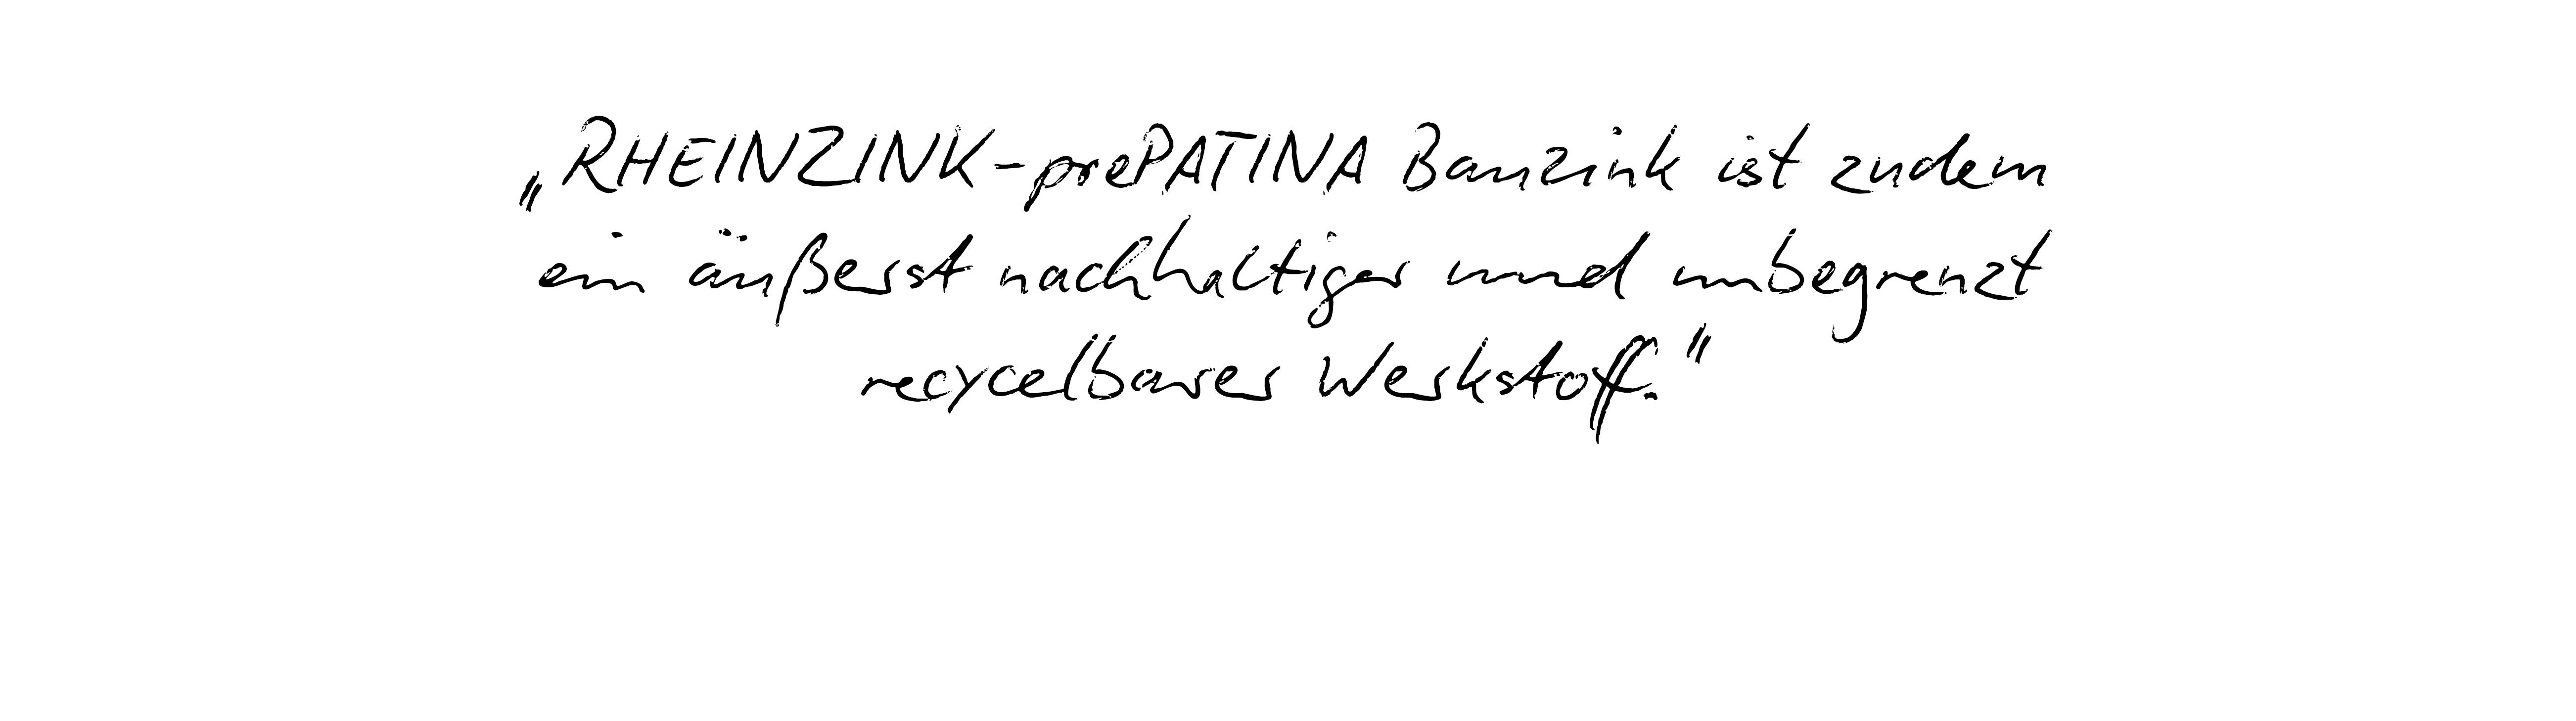 „RHEINZINK-prePATINA Bauzink ist zudem
ein äußerst nachhaltiger und unbegrenzt
recycelbarer Werkstoff.“